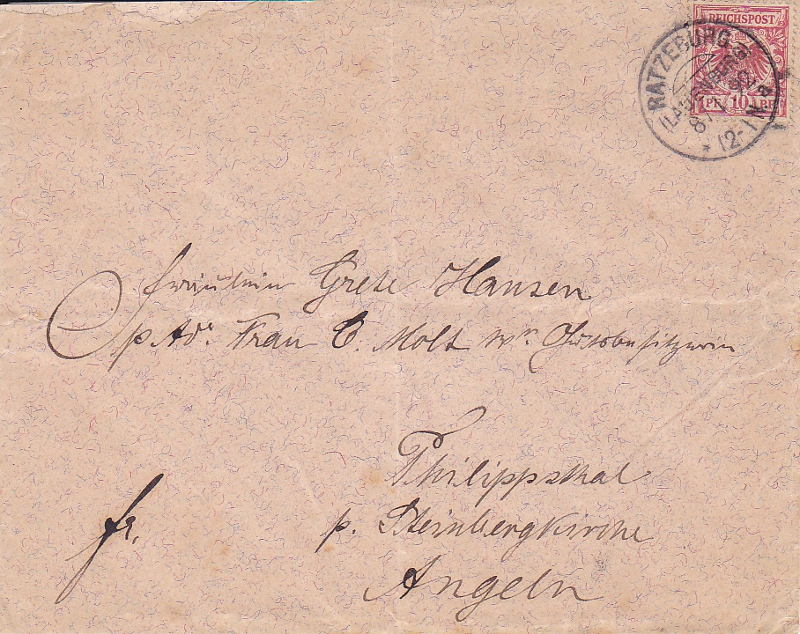 REICHSPOST
PF 10
RATZEBURG
(LAUENBURG)
* 12-1N a
Fräulein Grete Hansen
p. Adr. Frau C. Molt Ww. Gutsbesitzerin
Philippsthal
fr. p. Steinbergkirche
Angeln